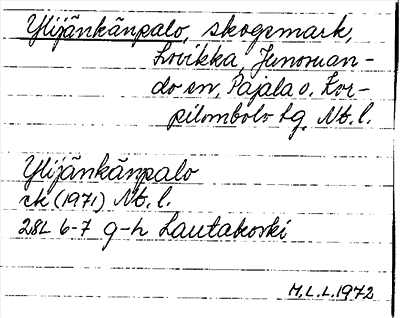 Ylijänkänpalo, skogsmark,
Lovikka, Junosuan-
do sn, Pajala o. Kor-
pilombolo tg. Nb. l.
Ylijänkänpalo
ek (1971) Nb. l.
28L 6-7 g-h Lautakoski
M.L.L. 1972